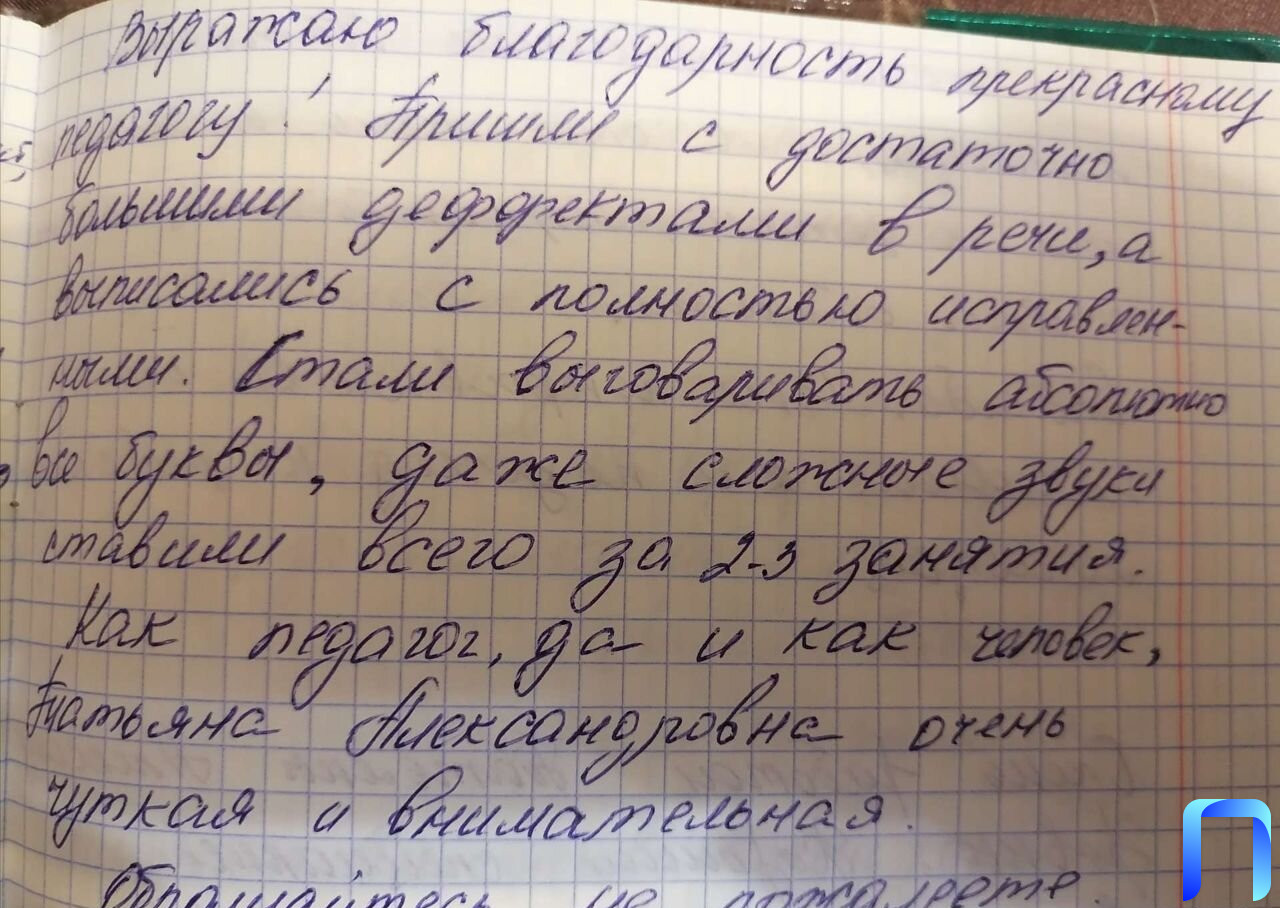 Выражаю благодарность прекрасному
педагогу! Пришли с достаточно
большими деффектами в речи, а
выписались с полностью исправлен-
ными. Стали выговаривать абсолютно
все буквы, даже сложные звуки
ставили всего за 2-3 занятия.
Как педагог, да и как человек,
Татьяна Александровна очень
чуткая и внимательная.
Обращайтесь не пожалеете.